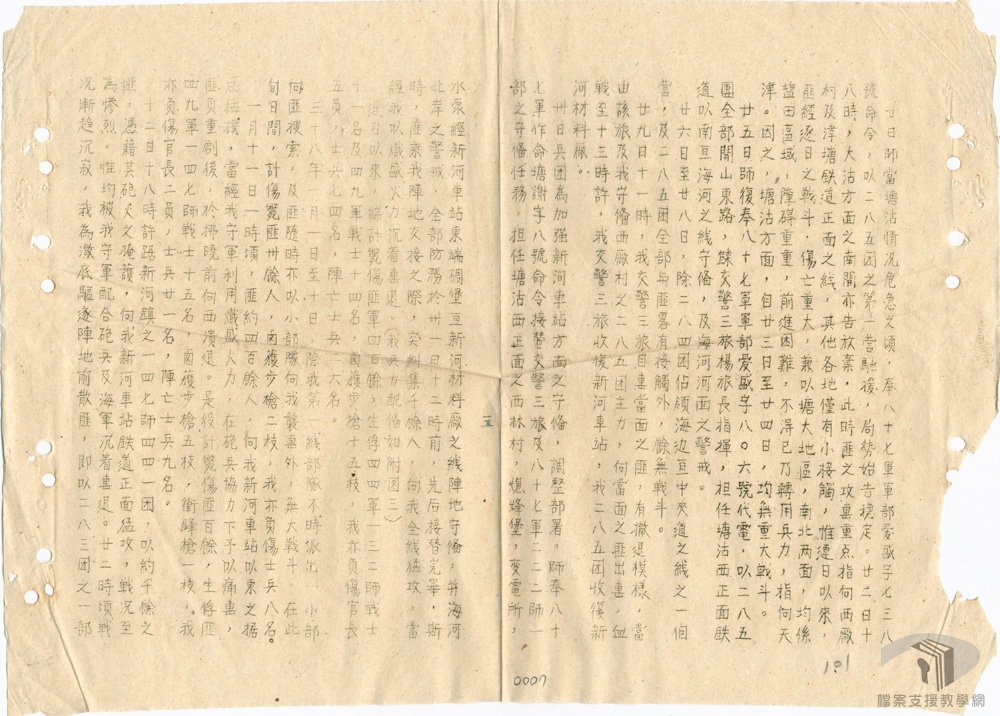 廿日師當塘沽情況危急之頃，奉八十七軍軍部愛盛字七三八
號命令，以二八五團之第一營馳援，局勢始告穩定。廿二日十
八時，大沽方面之南開亦告放棄，此時匪之攻裏重点指向西廠
村及津塘鉄道正面之線，其他各地僅有小接觸，惟連日以來，
匪經逐日之戰斗，傷亡重大，兼以塘大地區，南北两面，均係
盐田區域，障碍重重，前進困難，不得已乃轉用兵力，指向天
津。因之，塘沽方面，自廿三日至廿四日，均無重大戰斗。
廿五日師復奉八十七軍軍部愛盛字八〇六號代電，以二八五
團全部開山東路，歸交警三旅楊旅長指揮，担任塘沽西正面鉄
道以南亘海河之线守備，及海河河面之警戒。
廿六日至廿八日，除二八四团佔領海边亘中央道之线之一個
營，及二八五团全部与匪畧有接觸外，餘無戰斗。
廿九日十一時，我交警三旅目裏當面之匪，有撤退模樣，當
由該旅及我守備西廠村之二八五团主力，向當面之匪出裏，血
戰至十三時許，我交警三旅收復新河車站，我二八五团收復新
河材料厰。
卅日兵团為加强新河車站方面之守備，調整部署，師奉八十
七軍作命塘謝字八號命令接替交警三旅及八十七軍二二二師一
部之守備任務，担任塘沽西正面之西林村，熄烽堡，变電所，
水泵經新河車站東端碉堡亘新河材料廠之线陣地守備，并海河
北岸之警戒，全部防務於卅一日十二時前，先后接替完畢，斯
時，匪乘我陣地交接之際，突糾集千餘人，向我全线猛攻，當
經我以熾盛火力沉着裏退。（我兵力配備如附图三）
連日以來，綜計斃傷匪軍四百餘，生俘四四軍一三二師戰士
十一名及四九軍戰士十四名，鹵獲步槍十五枝，我亦負傷官長
五員，士兵七四名，陣亡士兵一六名。
三十八年一月一日至十日，除我第一线部隊不時派出一小部
向匪搜索，及匪歷時亦以小部隊向我襲裏外，無大戰斗，在此
旬日間，計傷斃匪卅餘人，鹵獲步槍二枝，我亦負傷士兵八名。
一月十一日一時頃，匪約四百餘人，向我新河車站以東之据
点猛撲，當經我守軍利用熾盛火力，在砲兵協力下予以痛裏，
匪負重創後，於拂曉前向西潰退。是役計斃傷匪百餘，生俘匪
四九軍一四七師戰士二名，鹵獲步槍五枝，衝鋒槍一枝，我
亦負傷官長二員，士兵廿一名，陣亡士兵九名。
十二日十八時許踞新河鎮之一四七師四四一团，以約千餘之
匪，憑藉其砲火之掩護，向我新河車站鉄道正面猛攻，戰况至
為慘烈，惟均被我守軍配合砲兵及海軍沉着裏退。廿二時頃戰
况漸趋沉寂，我為澈底驅逐陣地前散匪，即以二八三团之一部
五
0007
檔案支援教學網